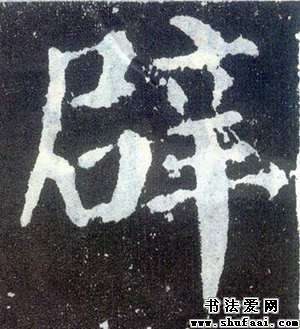 辟
书法爱网
www.shufaai.com